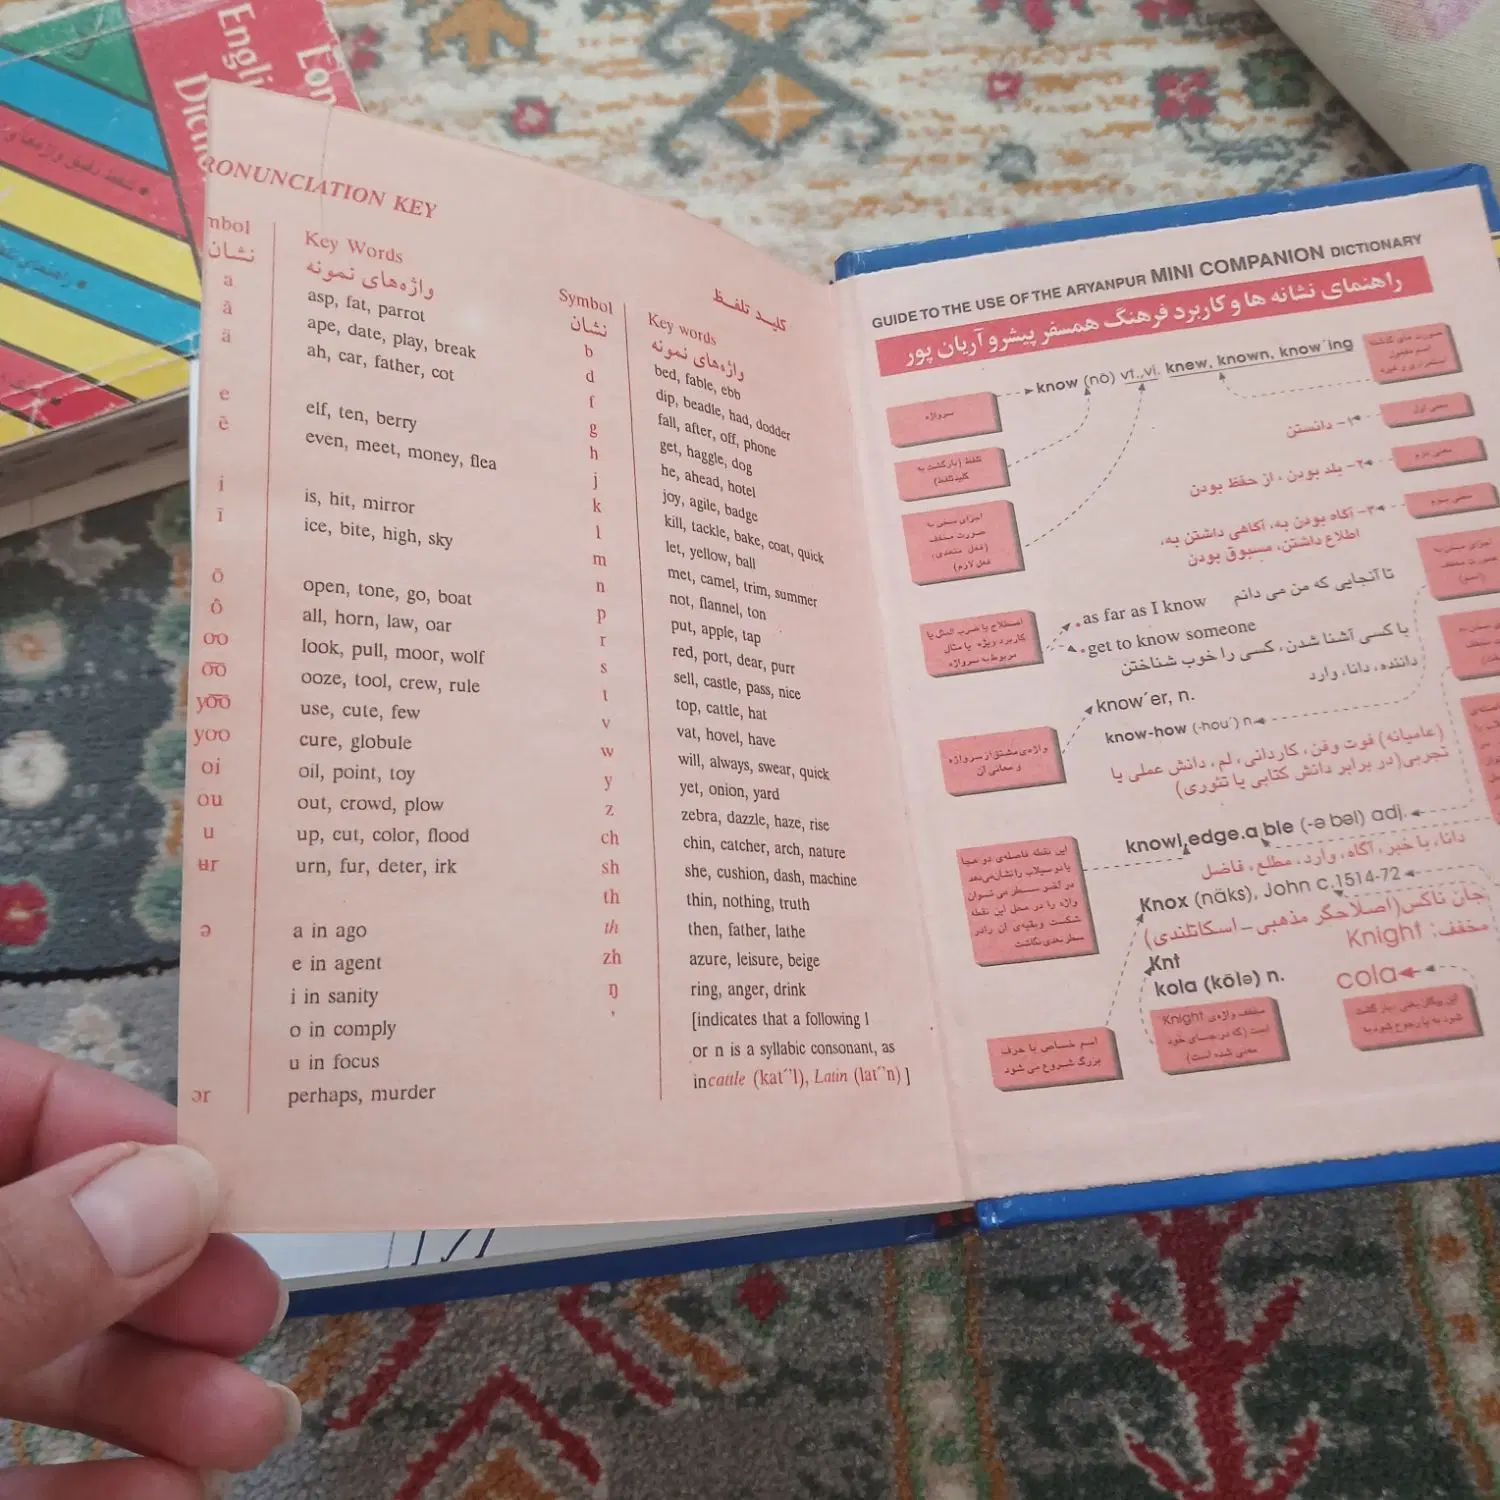 Eng
Dictio
RONUNCIATION KEY
کلید تلفظ
mbol
نشان
Key Words
واژه‌های نمونه
a asp, fat, parrot
ā ape, date, play, break
ä ah, car, father, cot
e elf, ten, berry
ē even, meet, money, flea
i is, hit, mirror
ī ice, bite, high, sky
ō open, tone, go, boat
ô all, horn, law, oar
oo look, pull, moor, wolf
o͞o ooze, tool, crew, rule
yo͞o use, cute, few
yoo cure, globule
oi oil, point, toy
ou out, crowd, plow
u up, cut, color, flood
ur urn, fur, deter, irk
ə a in ago
e in agent
i in sanity
o in comply
u in focus
ər perhaps, murder
Symbol
نشان
Key words
واژه‌های نمونه
b bed, fable, ebb
d dip, beadle, had, dodder
f fall, after, off, phone
g get, haggle, dog
h he, ahead, hotel
j joy, agile, badge
k kill, tackle, bake, coat, quick
l let, yellow, ball
m met, camel, trim, summer
n not, flannel, ton
p put, apple, tap
r red, port, dear, purr
s sell, castle, pass, nice
t top, cattle, hat
v vat, hovel, have
w will, always, swear, quick
y yet, onion, yard
z zebra, dazzle, haze, rise
ch chin, catcher, arch, nature
sh she, cushion, dash, machine
th thin, nothing, truth
th then, father, lathe
zh azure, leisure, beige
ŋ ring, anger, drink
' [indicates that a following l
or n is a syllabic consonant, as
in cattle (kat´'l), Latin (lat´'n) ]
GUIDE TO THE USE OF THE ARYANPUR MINI COMPANION DICTIONARY
راهنمای نشانه ها و کاربرد فرهنگ همسفر پیشرو آریان پور
know (nō) vt.,vi. knew, known, know´ing
سرواژه
معنی اول
۱- دانستن
تلفظ (بازگشت به
کلید تلفظ)
معنی دوم
۲- بلد بودن ، از حفظ بودن
معنی سوم
۳- آگاه بودن به، آگاهی داشتن به،
اطلاع داشتن، مسبوق بودن
اجزای سخن به
صورت مخفف
(فعل متعدی،
فعل لازم)
as far as I know تا آنجایی که من می دانم
get to know someone
با کسی آشنا شدن، کسی را خوب شناختن
اصطلاح یا ضرب المثل یا
کاربرد ویژه یا مثال
مربوط به سرواژه
know´er, n. داننده، دانا، وارد
know-how (-hou´) n.
(عامیانه) فوت وفن، کاردانی، لم، دانش عملی یا
تجربی(در برابر دانش کتابی یا تئوری)
واژه‌ی مشتق از سرواژه
و معانی آن
knowl.edge.a ble (-ə bəl) adj.
دانا، با خبر، آگاه، وارد، مطلع، فاضل
این نقطه فاصله‌ی دو هجا
یا دو سیلاب را نشان می‌دهد
در آخر سطر می توان
واژه را در محل این نقطه
شکست و بقیه‌ی آن را در
سطر بعدی نگاشت
Knox (näks), John c.1514-72
جان ناکس(اصلاحگر مذهبی – اسکاتلندی)
Knt مخفف: Knight
kola (kōlə) n. cola
اسم خاص با حرف
بزرگ شروع می شود
مخفف واژه‌ی Knight
است (که در جای خود
معنی شده است)